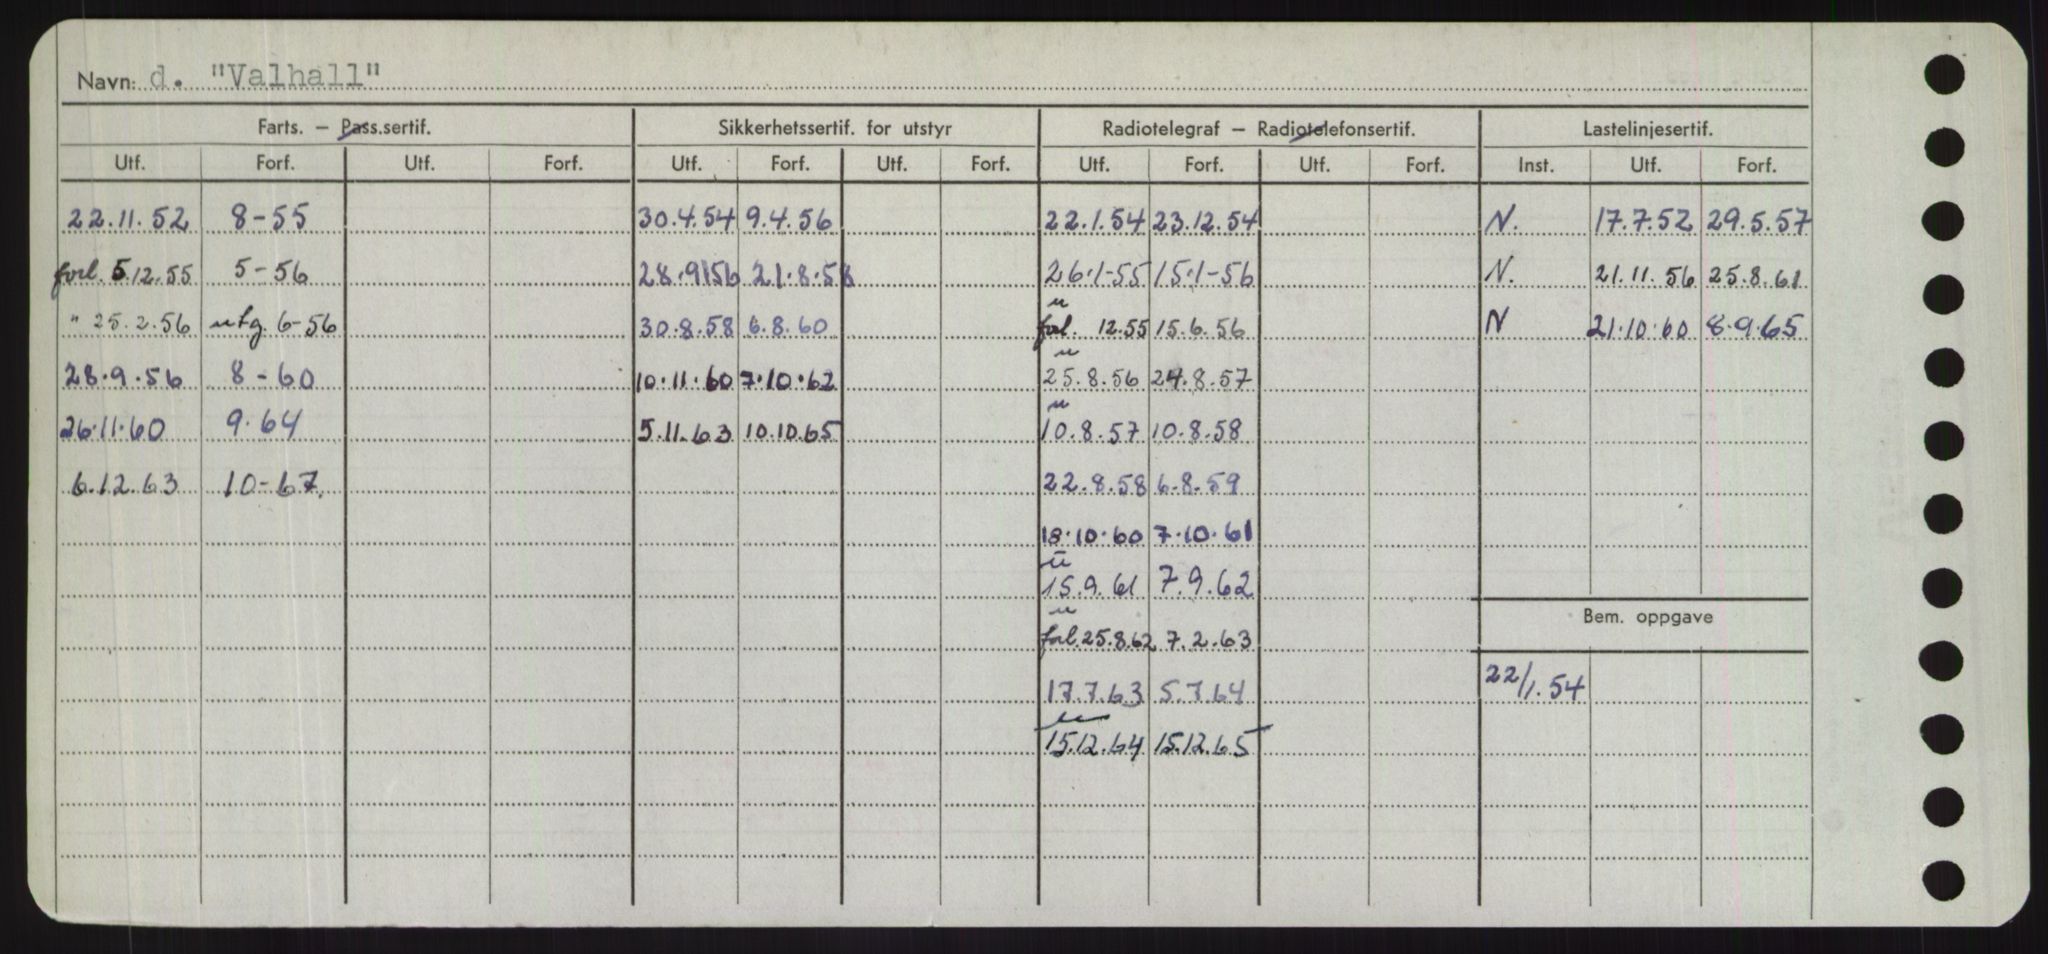 Navn: d. "Valhall"
Farts. – Pass.sertif. Sikkerhetssertif. for utstyr Radiotelegraf – Radiotelefonsertif. Lastelinjesertif.
Utf. Forf. Utf. Forf. Utf. Forf. Utf. Forf. Utf. Forf. Utf. Forf. Inst. Utf. Forf.
22.11.52 8-55 30.4.54 9.4.56 22.1.54 23.12.54 N. 17.7.52 29.5.57
forl. 5.12.55 5-56 28.9.56 21.8.58 26.1-55 15.1-56 N. 21.11.56 25.8.61
" 25.2.56 utg. 6-56 30.8.58 6.8.60 " forl. 12.55 15.6.56 N 21.10.60 8.9.65
28.9.56 8-60 10.11.60 7.10.62 " 25.8.56 24.8.57
26.11.60 9.64 5.11.63 10.10.65 " 10.8.57 10.8.58
6.12.63 10-67. 22.8.58 6.8.59
18.10.60 7.10.61
" 15.9.61 7.9.62
Bem. oppgave
" forl. 25.8.62 7.2.63
22/1.54
17.7.63 5.7.64
" 15.12.64 15.12.65